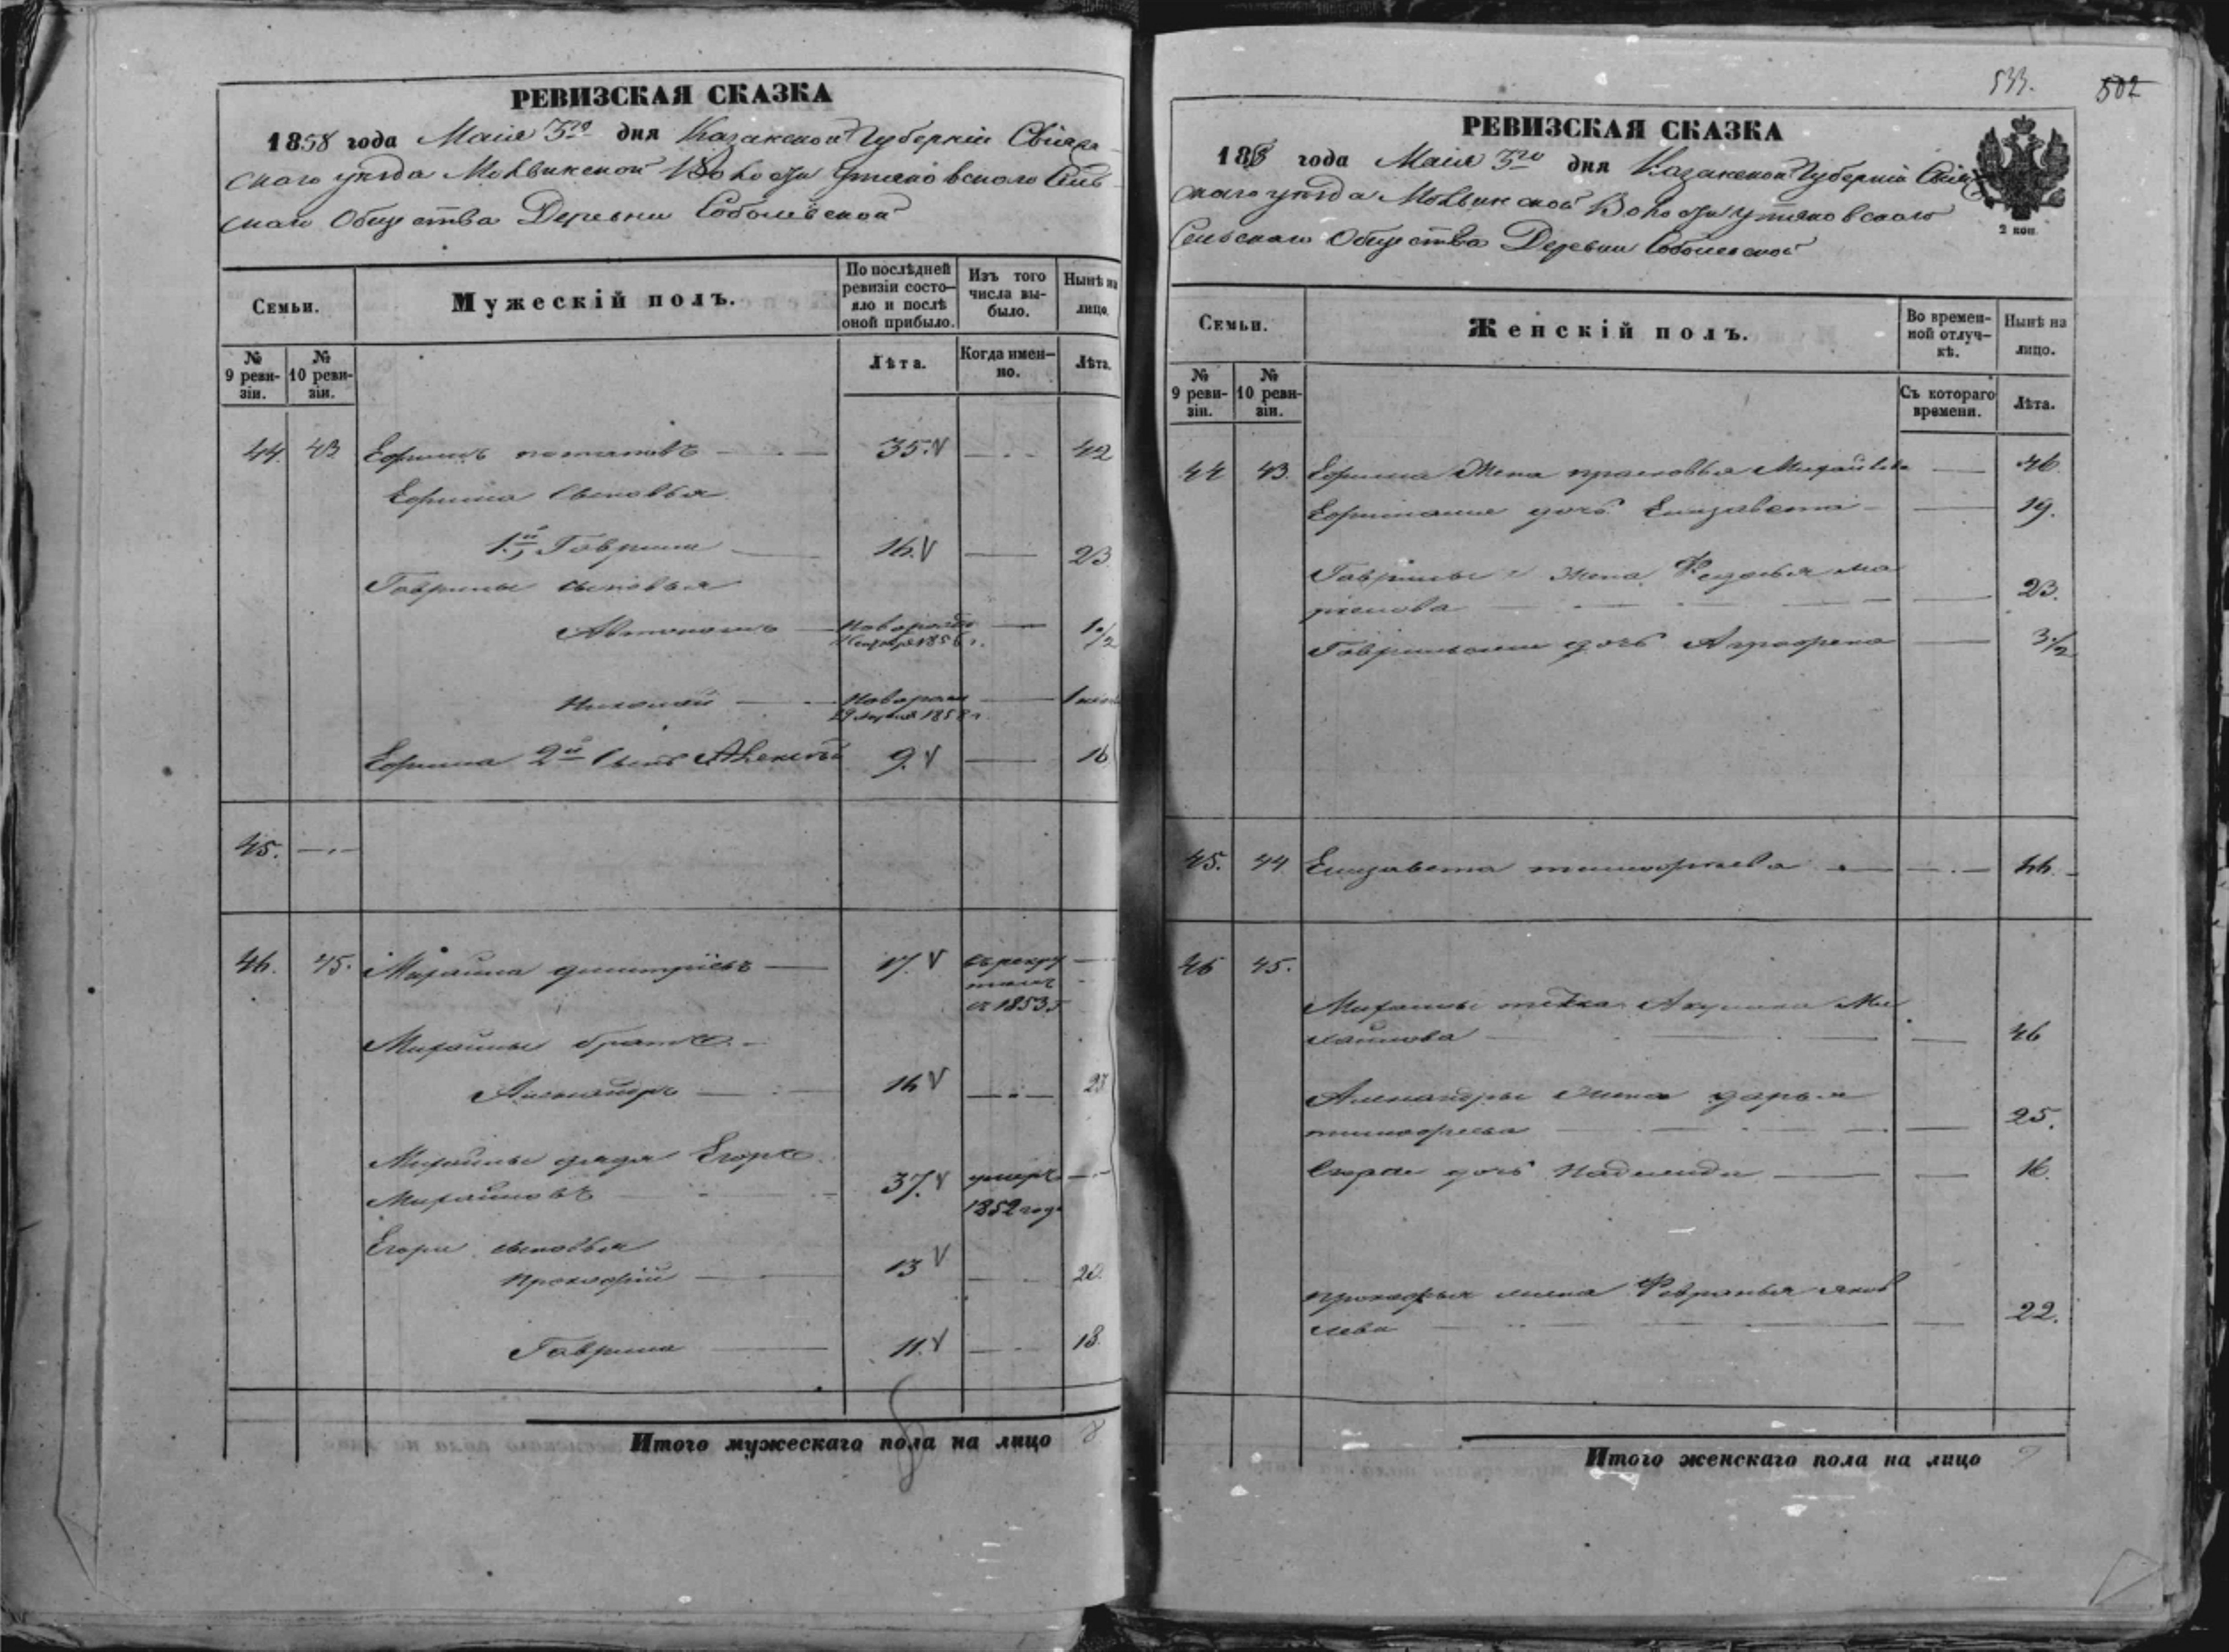 РЕВИЗСКАЯ СКАЗКА
1858 года Маія 3го дня Казанской Губерніи Свіяж
скаго уѣзда Молвинской Волости Утяковскаго Сель
скаго Общества Деревни Соболевской
Семьи.
Мужескій полъ.
По послѣдней ревизіи состояло и послѣ оной прибыло.
Изъ того числа выбыло.
Нынѣ на лицо.
№ 9 ревизіи.
№ 10 ревизіи.
Лѣта.
Когда именно.
Лѣта.
44. 43 Ефимъ Потаповъ 35. 42
Ефима Сыновья
1й, Гаврила 16. 23
Гаврилы сыновья
Автономъ Новорожд 1856 г. 1 1/2
Николай Новорожд 29 Апреля 1858 г.
Ефима 2й Сынъ Алексѣй 9. 16
45.
46. 45. Михайла Дмитріевъ 17. въ рекру
тахъ
съ 1853 г
Михайлы братъ
Александръ 16 23
Михайлы дядя Егоръ
Михайловъ 37. умеръ
1852 года
Егора сыновья
Прокофій 13 20.
Гаврила 11. 18.
Итого мужескаго пола на лицо 8
533. 502
РЕВИЗСКАЯ СКАЗКА
1858 года Маія 3го дня Казанской Губерніи Свіяж
скаго уѣзда Молвинской Волости Утяковскаго
Сельскаго Общества Деревни Соболевской
2 коп
Семьи.
Женскій полъ.
Во временной отлучкѣ.
Нынѣ на лицо.
№ 9 ревизіи.
№ 10 ревизіи.
Съ котораго времени.
Лѣта.
44 43. Ефима Жена Прасковья Михайлова 46.
дочь Елизавета 19.
Гаврилы Жена Федосья Ма
ркелова 23.
дочь Аграфена 3 1/2
45. 44 Елизавета Тимофѣева 44.
46 45.
Михайлы тетка Акулина Ми
хайлова 46
Александры Жена Дарья
Тимофѣева 25.
Егора дочь Надежда 16.
Прокофья жена Февронья Яков
лева 22.
Итого женскаго пола на лицо 9